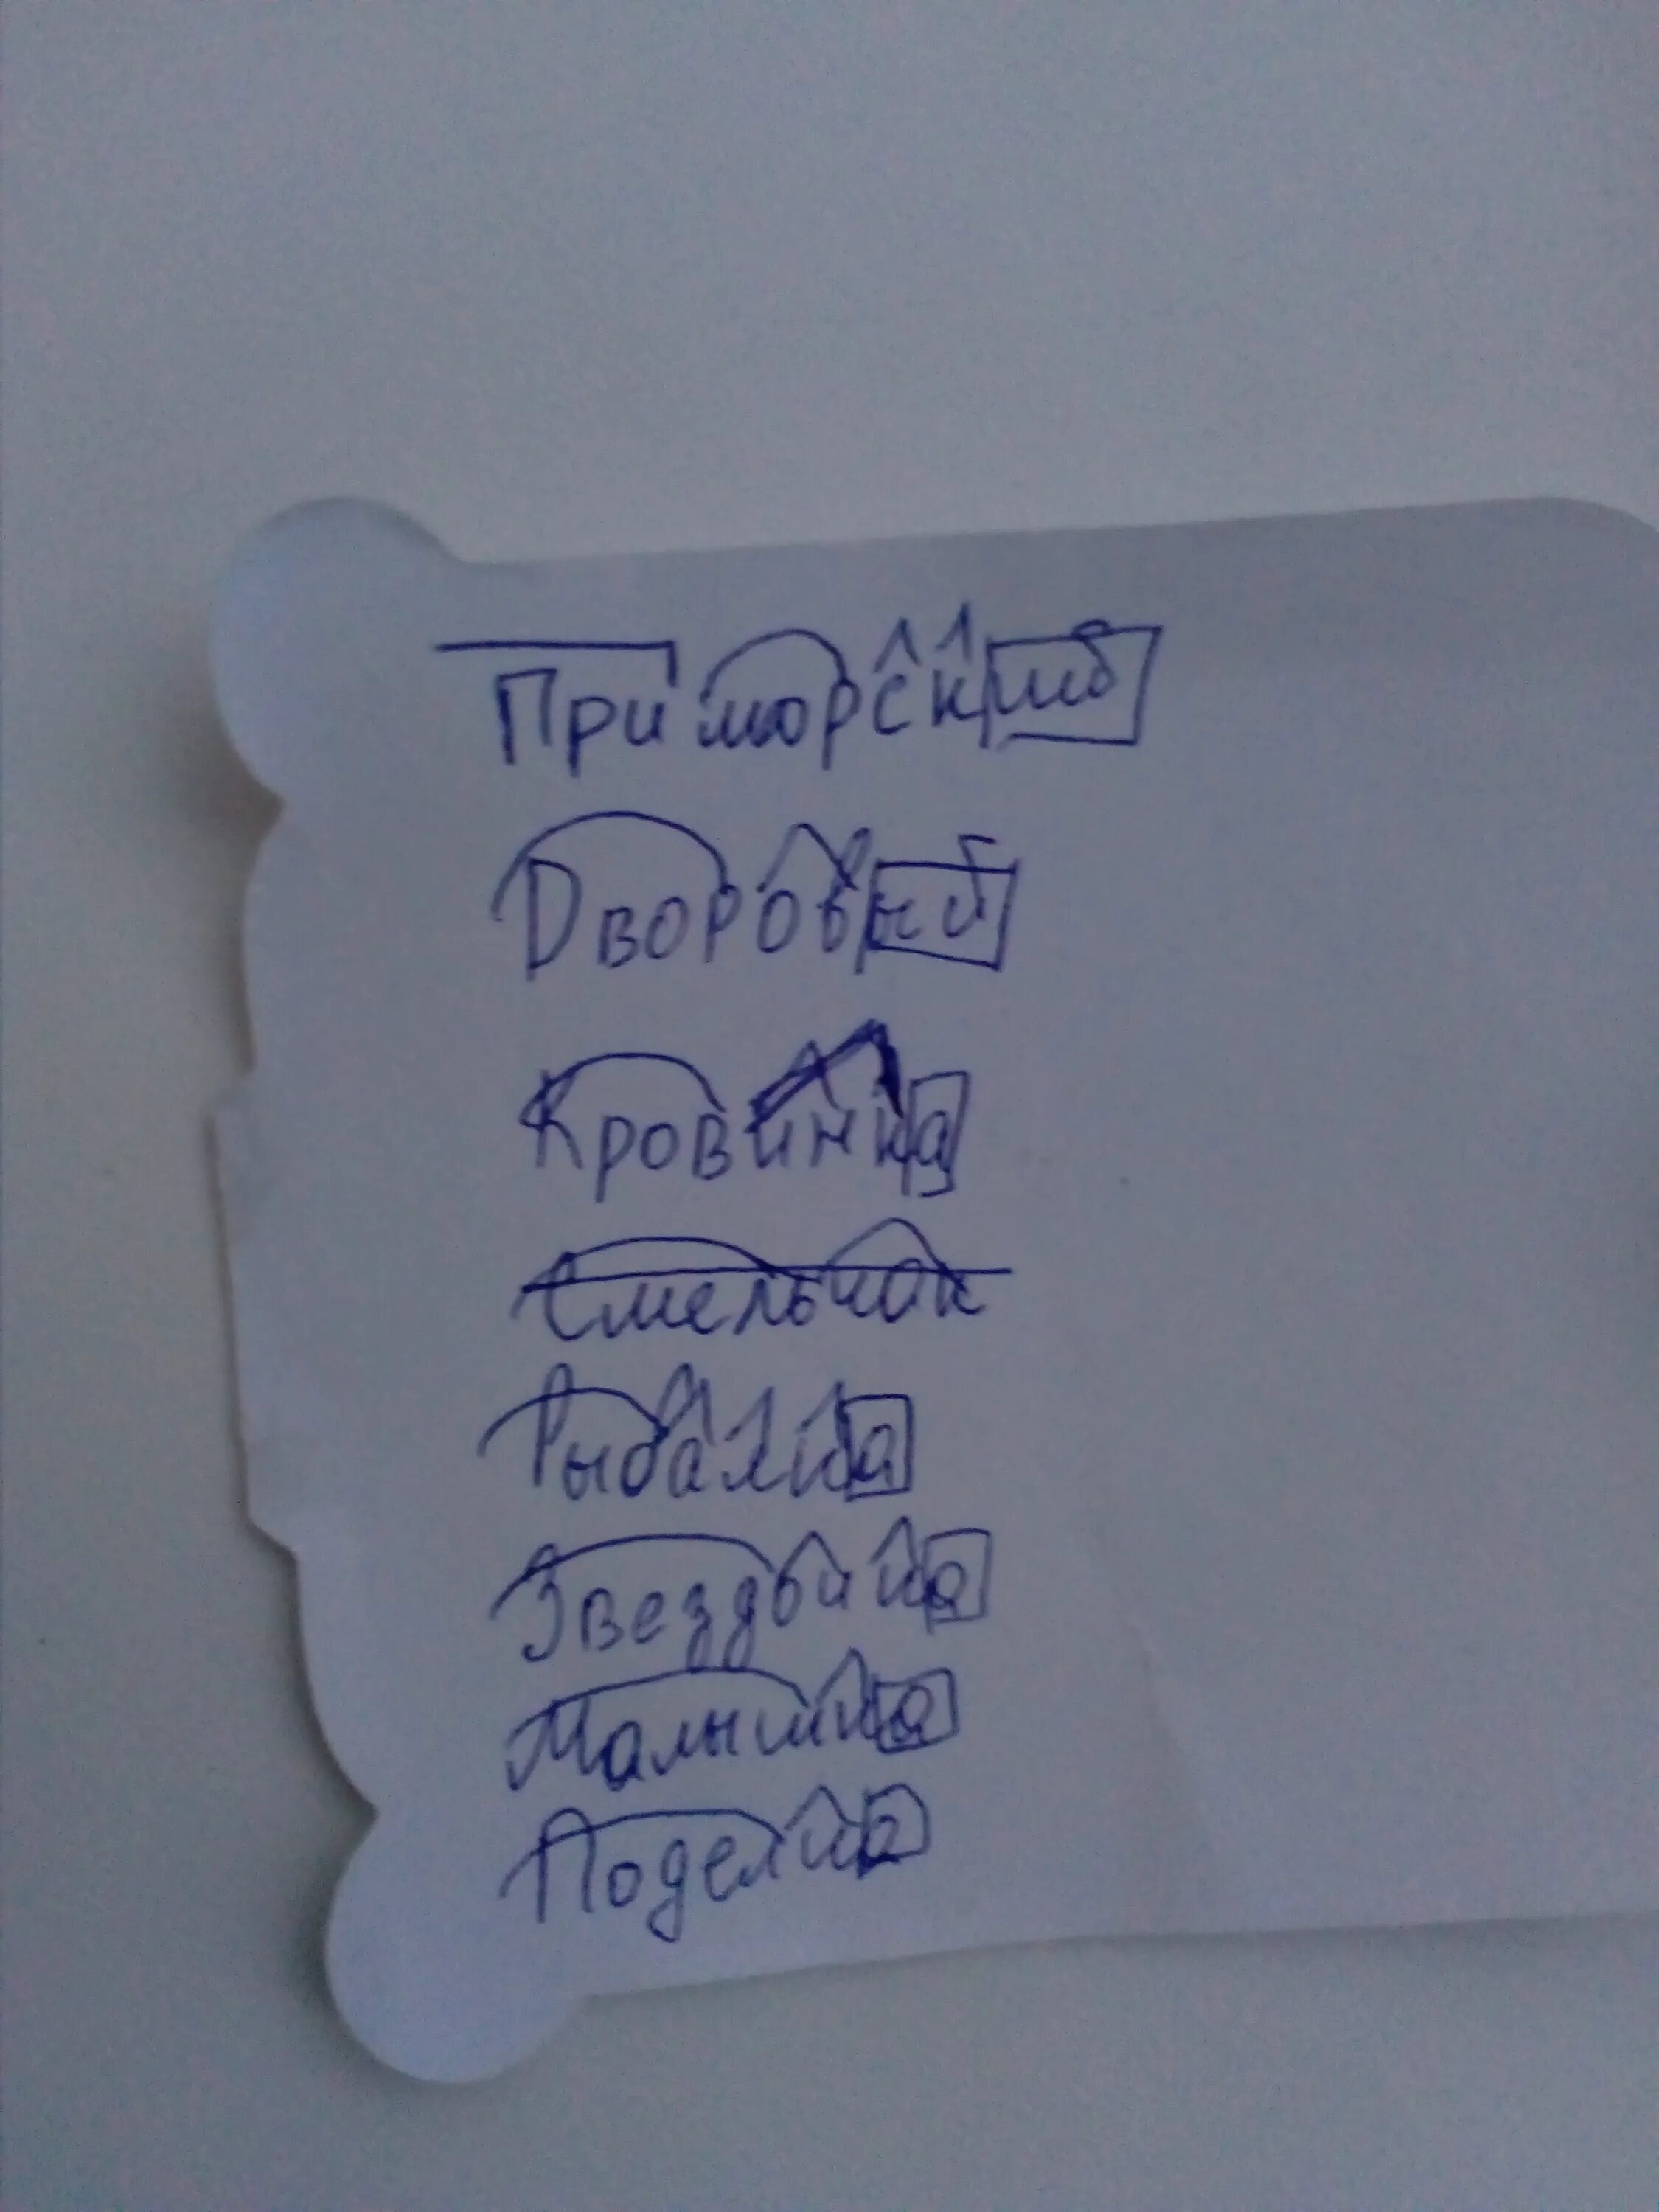 Приморский
Дворовый
Кровинка
Смельчак
Рыбалка
Звездочка
Малышка
Поделка